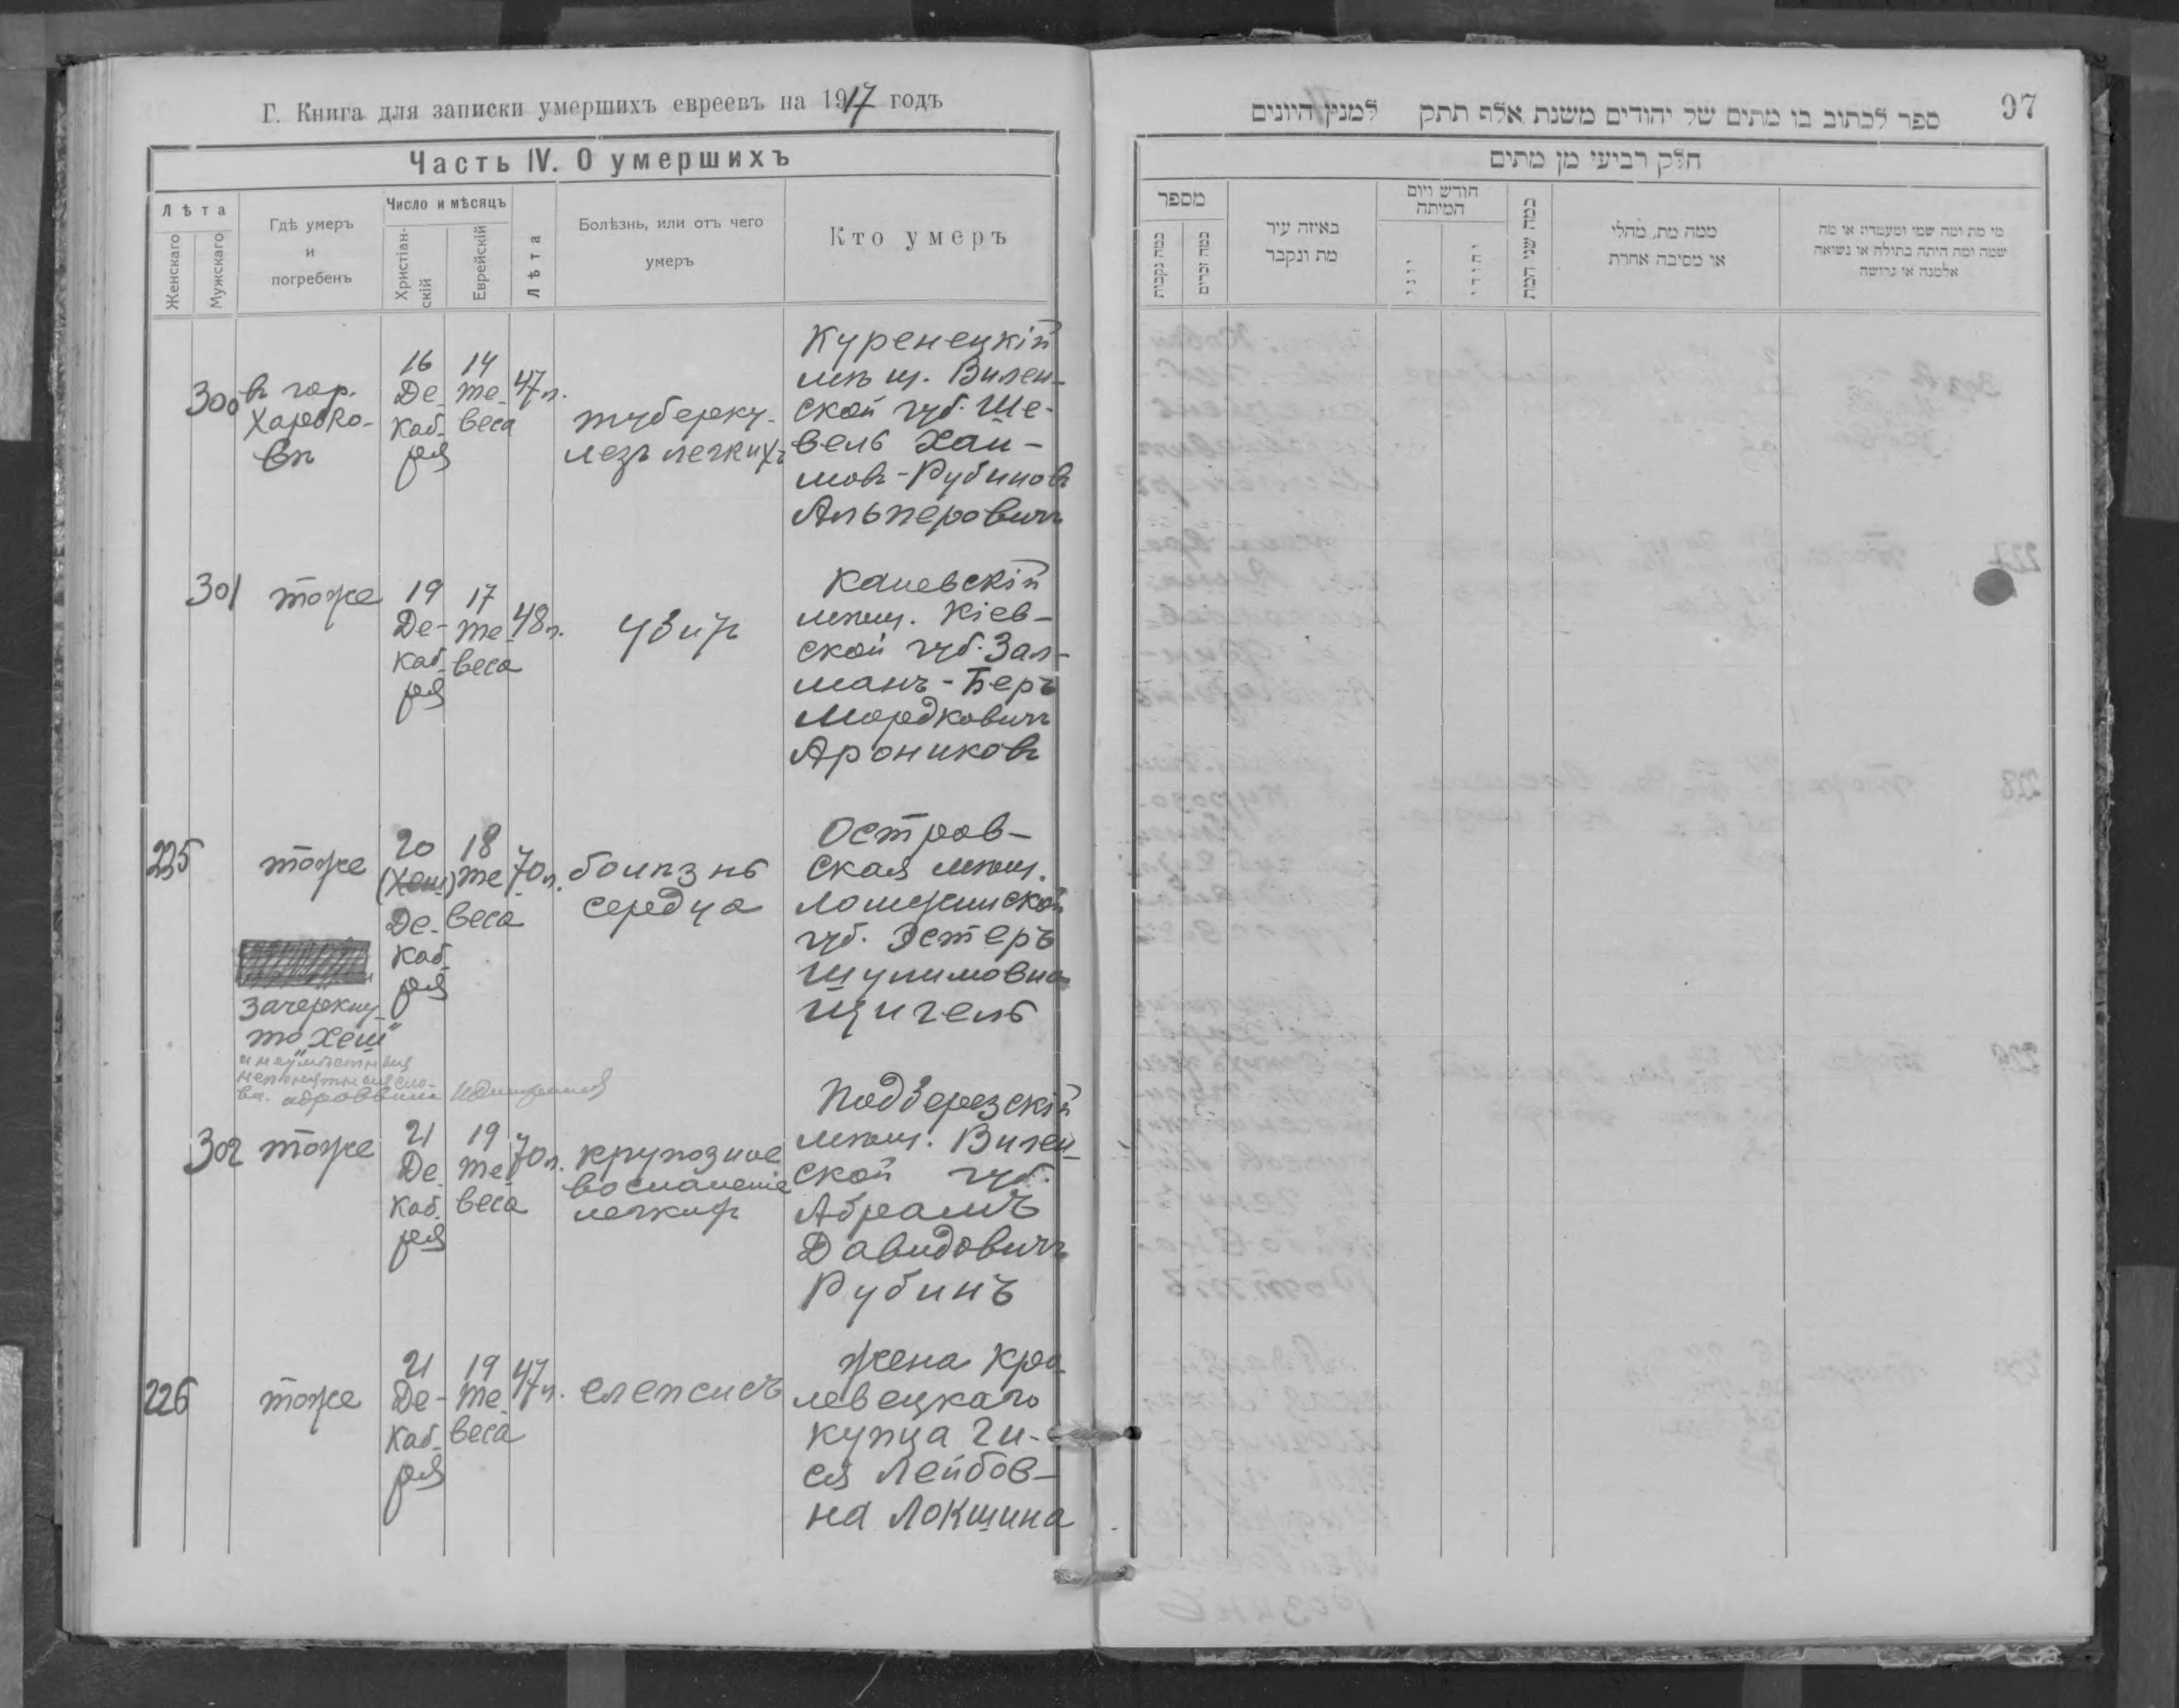 Г. Книга для записки умершихъ евреевъ на 1917 годъ
Часть IV. О умершихъ
Лѣта
Женскаго
Мужскаго
Гдѣ умеръ
и
погребенъ
Число и мѣсяцъ
Христіан-
скій
Еврейскій
Лѣта
Болѣзнь, или отъ чего
умеръ
Кто умеръ
300
в гор.
Харько-
вѣ
16
Де-
каб-
ря
14
те-
веса
47 л.
туберку-
лезъ легкихъ
Куренецкій
мѣщ. Вилен-
ской губ. Ше-
вель Хаи-
мовъ-Рубиновъ
Альперовичъ
301
тоже
19
Де-
каб-
ря
17
те-
веса
48 л.
Каневскій
мѣщ. Кіев-
ской губ. Зал-
манъ-Беръ
Мордковичъ
Арониковъ
225
тоже
20
(Хеш)
Де-
каб-
ря
18
те-
веса
70 л.
болѣзнь
сердца
Остров-
ская мѣщ.
Ломжинской
губ. Эстеръ
Шулимовна
Щигель
зачеркну-
то „Хеш"
302
тоже
21
Де-
каб-
ря
19
те-
веса
70 л.
крупозное
воспаленіе
легкихъ
Подберезскій
мѣщ. Вилен-
ской губ.
Абрамъ
Давидовичъ
Рубинъ
226
тоже
21
Де-
каб-
ря
19
те-
веса
47 л.
сепсисъ
Жена Кро-
левецкаго
купца Ги-
ся Лейбов-
на Локшина
97
ספר לכתוב בו מתים של יהודים משנת אלף תתק למנין היונים
חלק רביעי מן מתים
מספר
כמה נקבות
כמה זכרים
באיזה עיר
מת ונקבר
חודש ויום
המיתה
יוני
יהודי
כמה שני המת
ממה מת, מחלי
או מסיבה אחרת
מי מת ומה שמו ומעמדו או מה
שמה ומה היתה בתולה או נשואה
אלמנה או גרושה